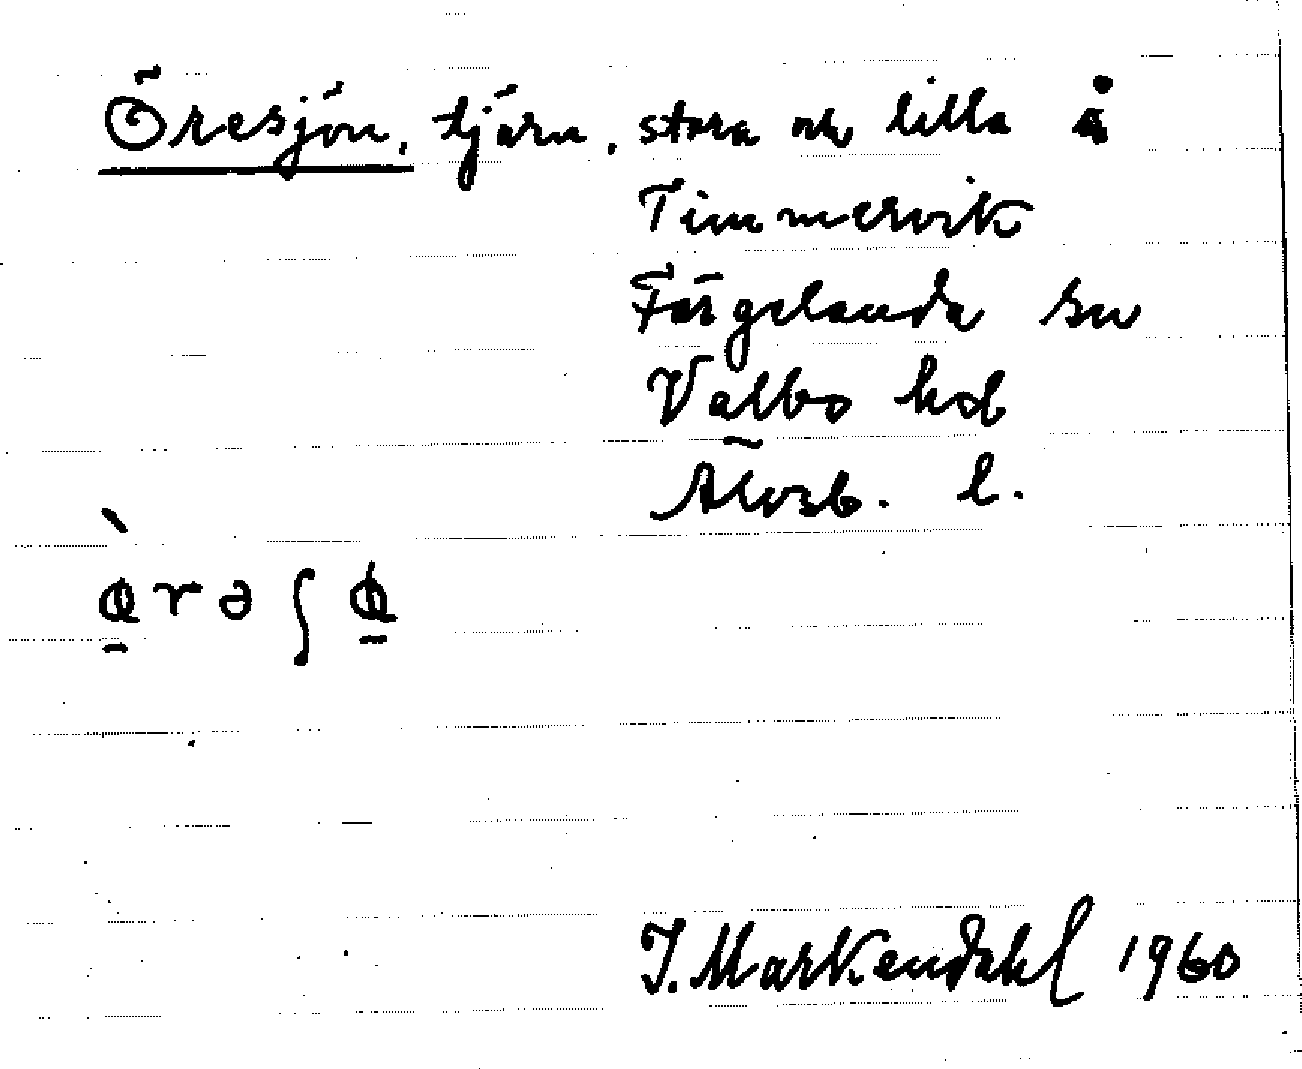 Öresjön, tjärn, stora och lilla å
Timmervik
Färgelanda sn
Valbo hd
Älvsb. l.
J. Markendahl 1960